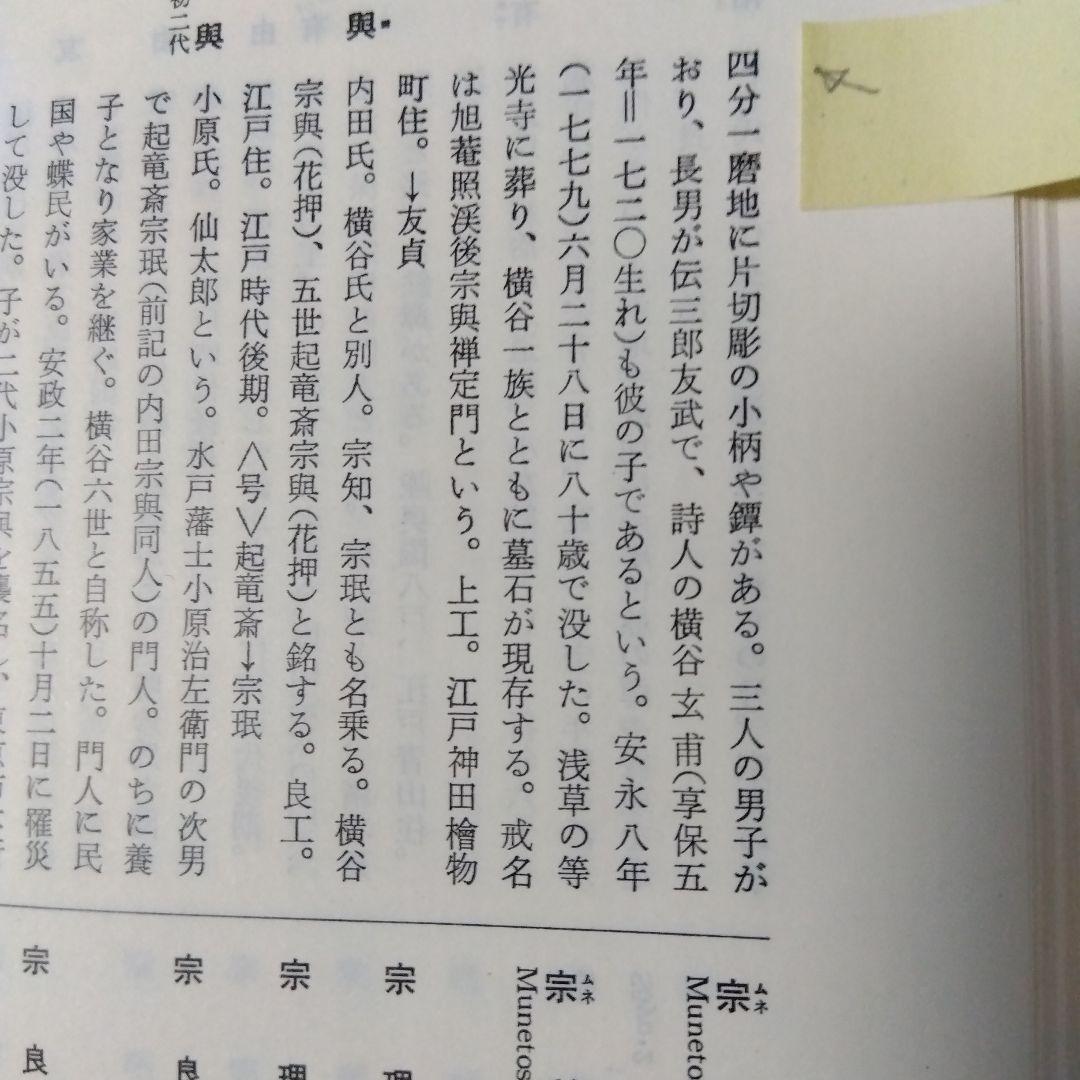 四分一磨地に片切彫の小柄や鐔がある。三人の男子が
おり、長男が伝三郎友武で、詩人の横谷玄甫(享保五
年＝一七二〇生れ)も彼の子であるという。安永八年
(一七七九)六月二十八日に八十歳で没した。浅草の等
光寺に葬り、横谷一族とともに墓石が現存する。戒名
は旭菴照渓後宗與禅定門という。上工。江戸神田檜物
町住。→友貞
與
内田氏。横谷氏と別人。宗知、宗珉とも名乗る。横谷
宗與(花押)、五世起竜斎宗與(花押)と銘する。良工。
江戸住。江戸時代後期。<号>起竜斎→宗珉
與
初二代
小原氏。仙太郎という。水戸藩士小原治左衛門の次男
で起竜斎宗珉(前記の内田宗與同人)の門人。のちに養
子となり家業を継ぐ。横谷六世と自称した。門人に民
国や蝶民がいる。安政二年(一八五五)十月二日に罹災
して没した。子が二代小原宗與を襲名し、
宗
ムネ
Muneto
宗
ムネ
Munetos
宗 理
宗 理
宗 良
宗 良